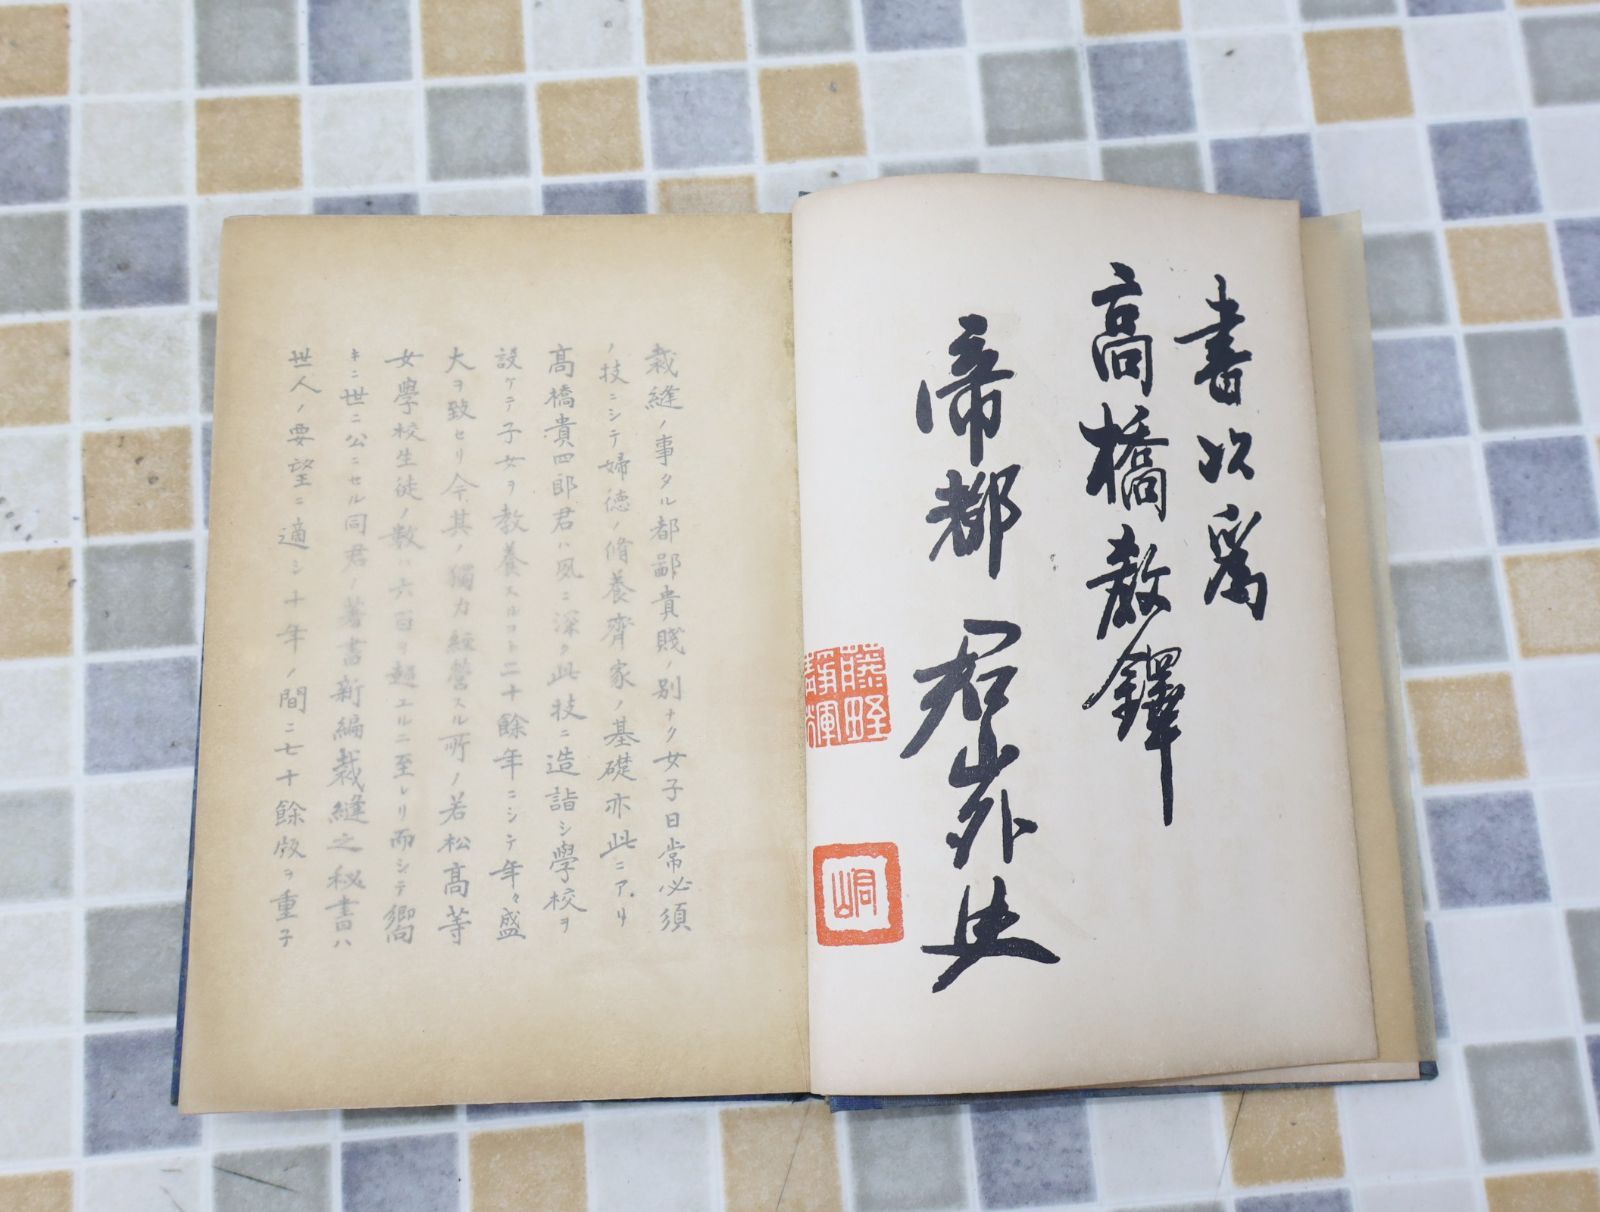 書以為
高橋教鐸
帝都 君山外史
藤野
静輝
君山
裁縫ノ事タル都鄙貴賤ノ別ナク女子日常必須
ノ技ニシテ婦徳ノ脩養齊家ノ基礎亦此ニアリ
髙橋貴四郎君ハ夙ニ深ク此技ニ造詣シ學校ヲ
設ケテ子女ヲ教養スルコト二十餘年ニシテ年々盛
大ヲ致セリ今其ノ獨力經營スル所ノ若松髙等
女學校生徒ノ數ハ六百ヲ超エルニ至レリ而シテ嚮
キニ世ニ公ニセル同君ノ著書新編裁縫之秘書ハ
世人ノ要望ニ適シ十年ノ間ニ七十餘版ヲ重子